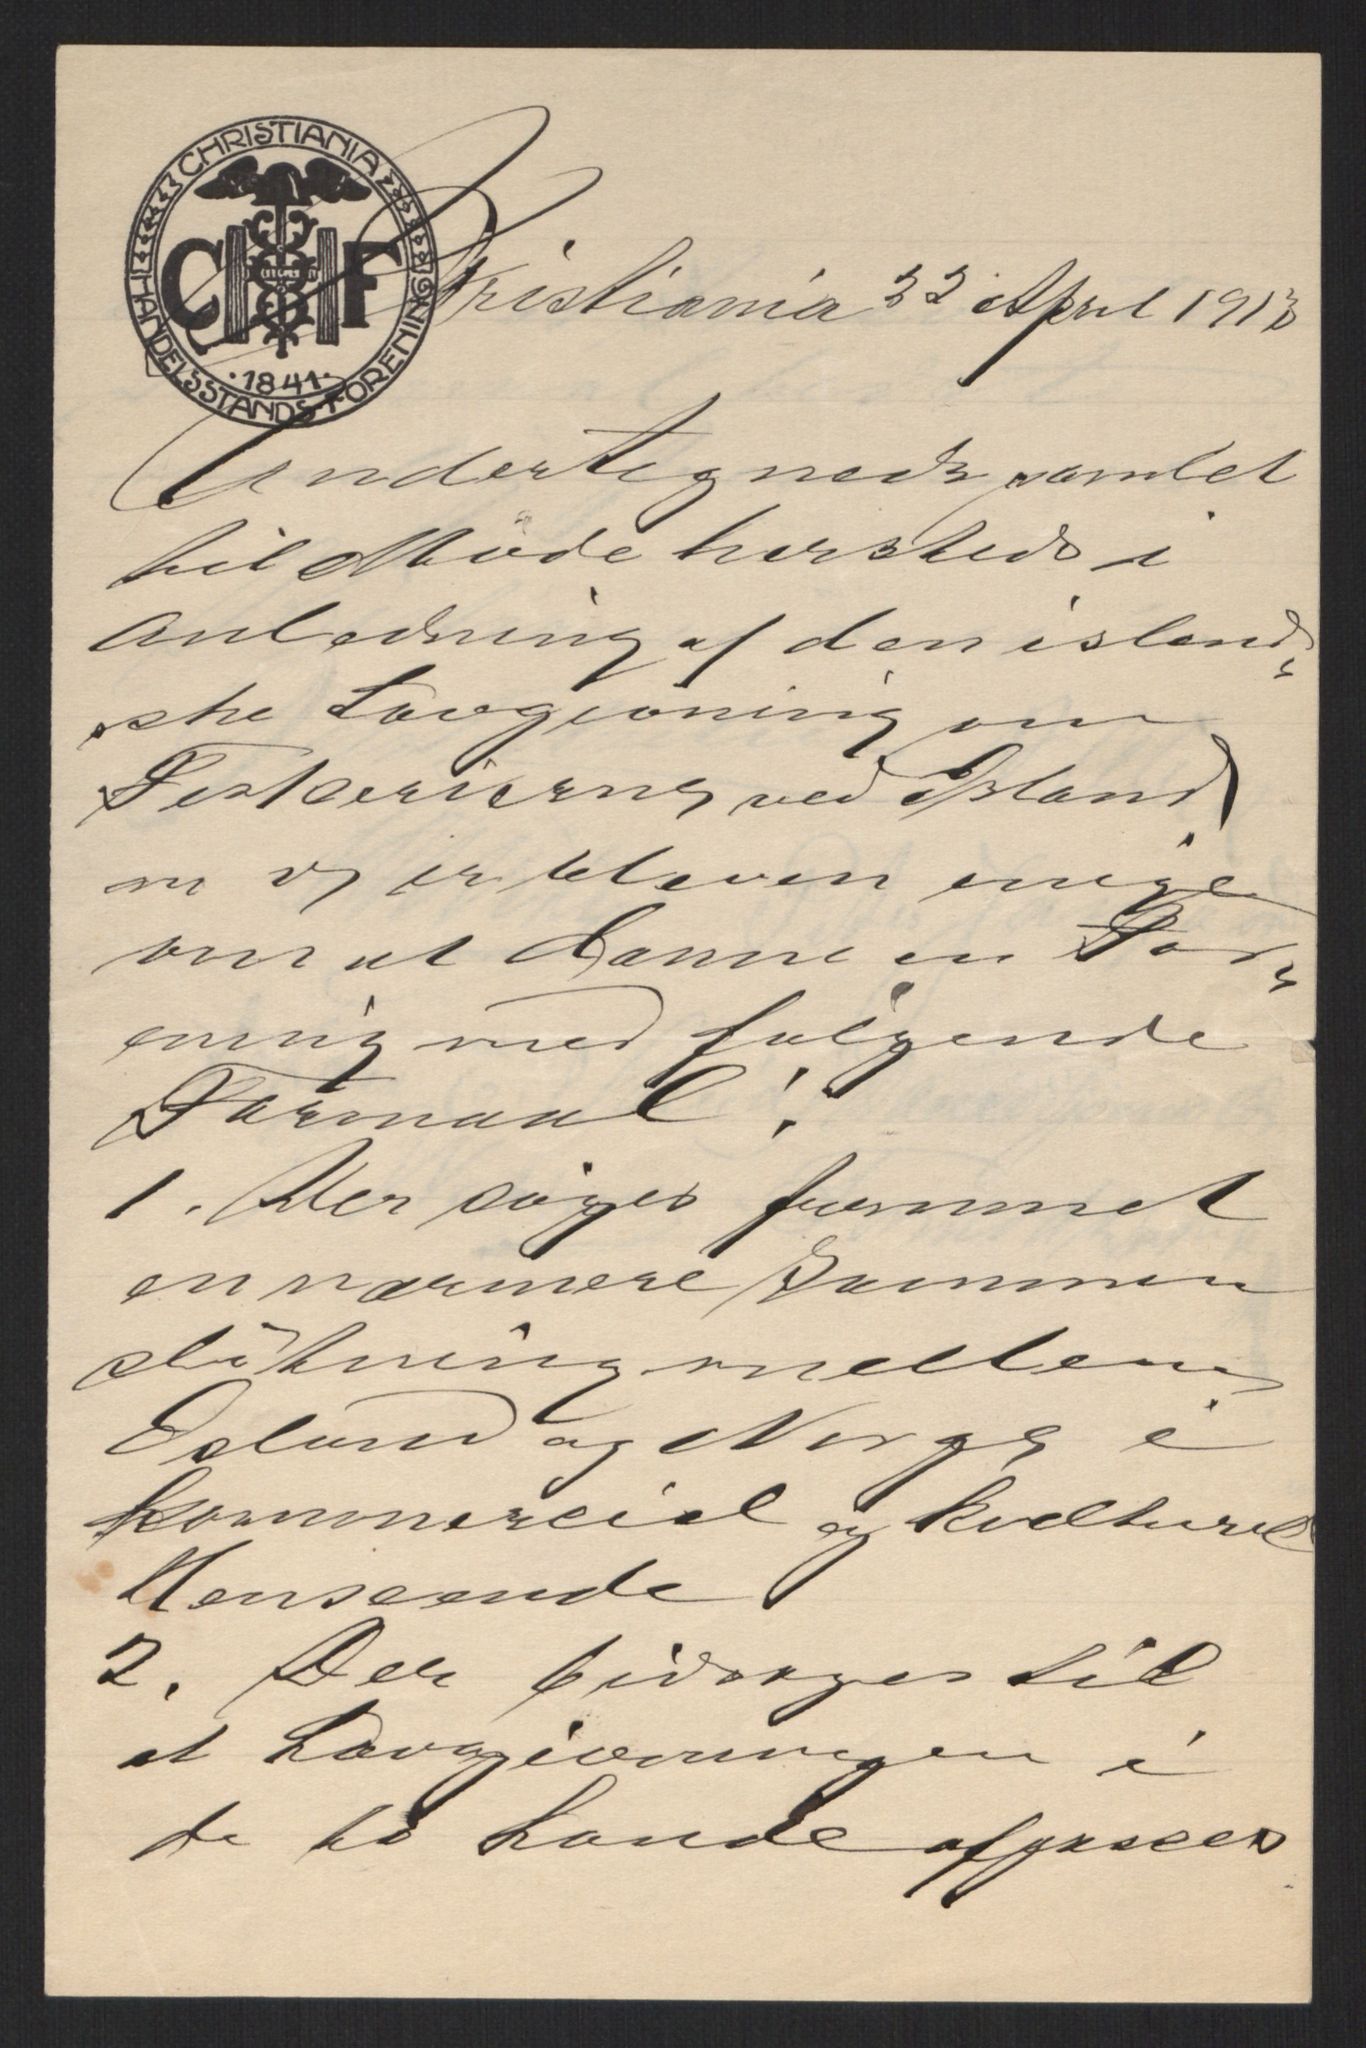 CHRISTIANIA
HANDELSSTANDS FORENING
CHF
· 1841 ·
Kristiania 22 April 1913
Undertegnede samlet
til Möde hersteds i
Anledning af den island„
ske Lovgivning om
Fiskerierne ved Island
er blevet enige
om at danne en For„
ening med følgende
Formaal:
1. Der söges fremmet
en nærmere Sammen
slutning mellem
Island og Norge i
kommerciel og kulturel
Henseende
2. Der bidrages til
at Lovgivningen i
de to Lande afpasses